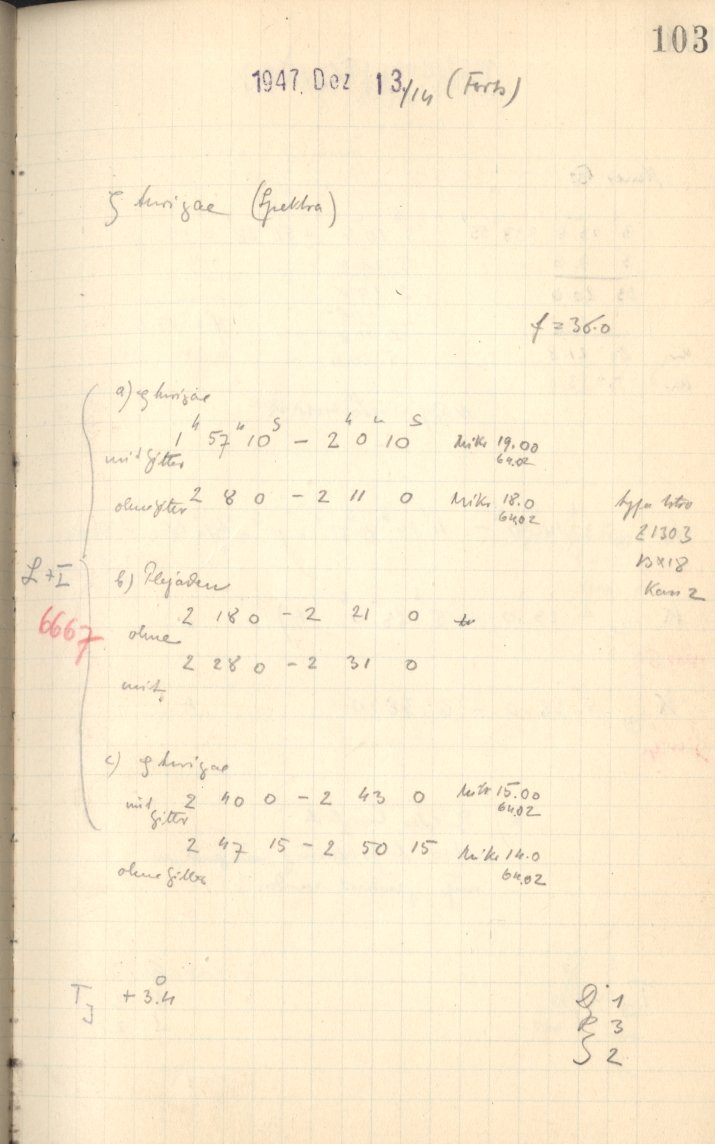 103
1947 Dez 13/14 (Forts)
ζ Aurigae (Spektra)
f = 36.0
a) ζ Aurigae
1ʰ 57ᵐ 10ˢ – 2ʰ 0ᵐ 10ˢ Mikr 19.00
mit Gitter 64.02
ohne Gitter 2 8 0 – 2 11 0 Mikr 18.0
64.02
Agfa Astro
Z1303
13x18
Kass 2
L + I
6667
b) Plejaden
2 18 0 – 2 21 0
ohne
2 28 0 – 2 31 0
mit
c) ζ Aurigae
mit Gitter 2 40 0 – 2 43 0 Mikr 15.00
64.02
2 47 15 – 2 50 15 Mikr 14.0
ohne Gitter 64.02
TJ + 3°.4
D 1
R 3
S 2